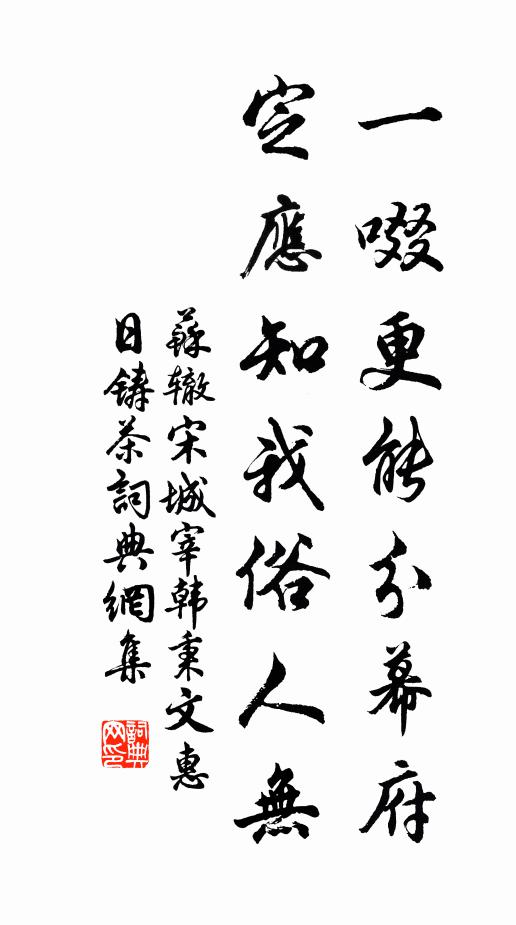 一啜更能分幕府
定應知我俗人無
蘇轍宋城宰韩秉文惠
日鑄茶詞典網集
詞典
网印